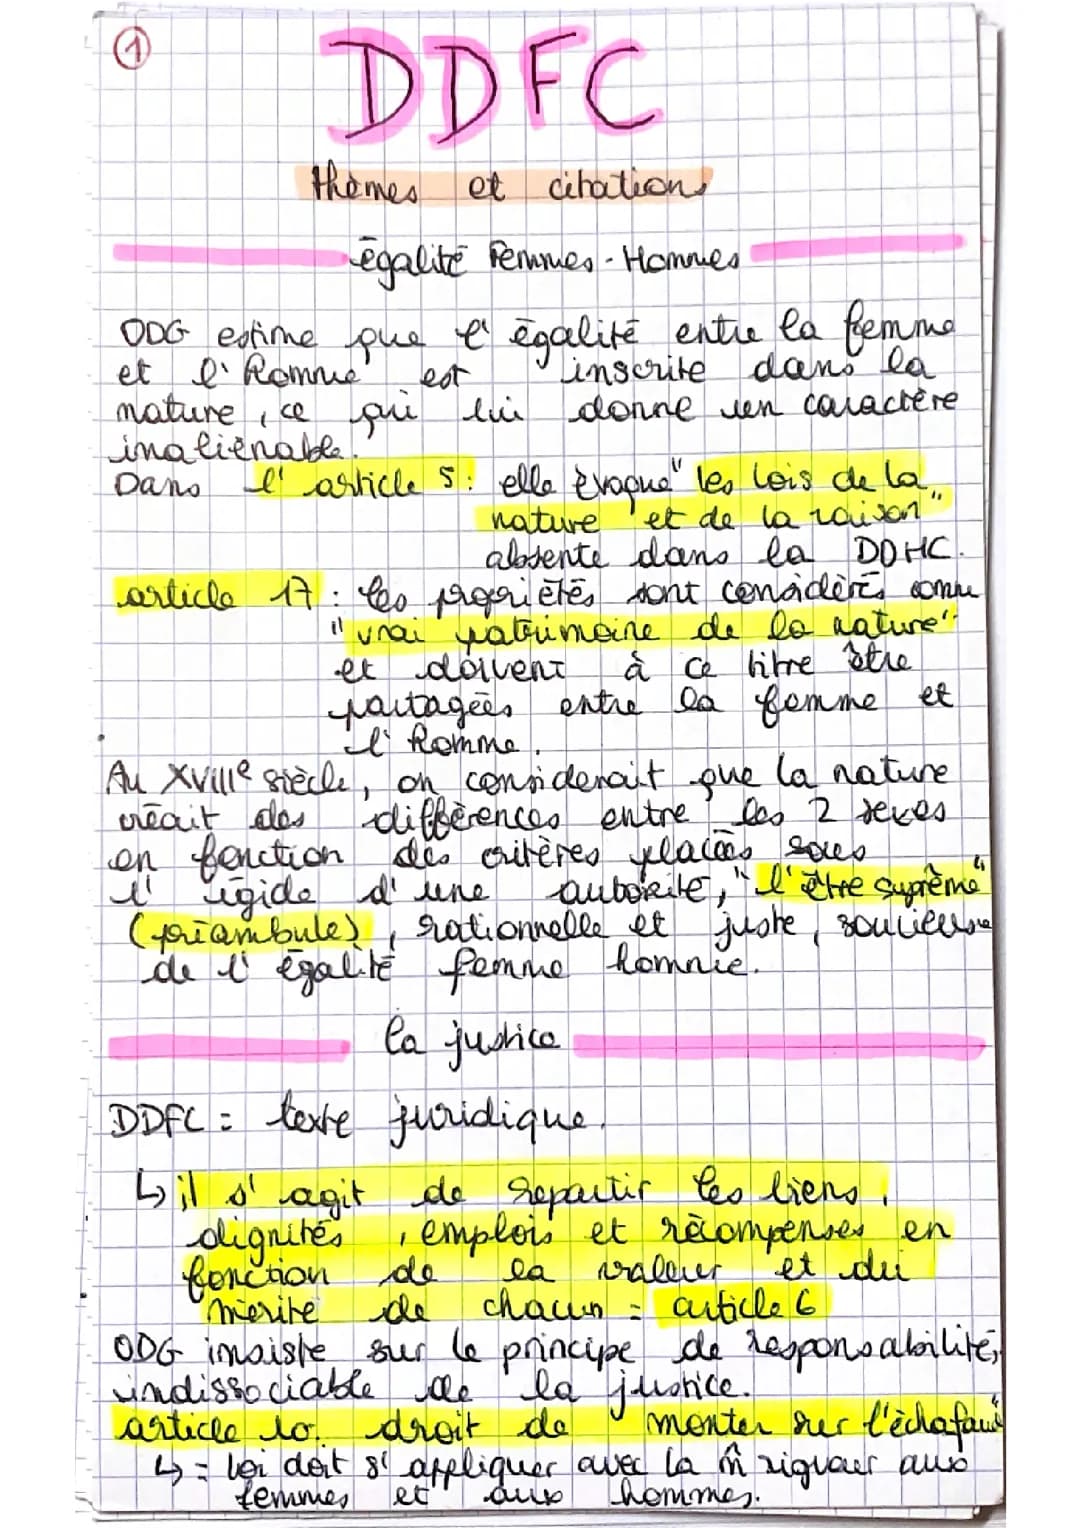 ①
DDFC
thèmes et citations
égalité Femmes - Hommes
ODG estime que l' égalité entre la femme
et l' homme est inscrite dans la
nature, ce qui lui donne un caractère
inaliénable.
Dans l' article 5 : elle évoque "les lois de la
nature et de la raison"
absente dans la DDHC.
article 17 : les propriétés sont considérés comme
"vrai patrimoine de la nature"
et doivent à ce titre être
partagées entre la femme et
l' homme.
Au XVIIIe siècle, on considerait que la nature
créait des différences entre les 2 sexes
en fonction des critères placés sous
l' égide d' une autorité, "l'être suprême"
(préambule), rationnelle et juste, soucieuse
de l' égalité femme homme.
la justice
DDFC = texte juridique.
↳ il s' agit de repartir les biens,
dignités, emplois et récompenses en
fonction de la valeur et du
mérite de chacun = article 6
ODG insiste sur le principe de responsabilité,
indissociable de la justice.
article 10. droit de monter sur l'échafaud
↳ = loi doit s' appliquer avec la m̂ rigueur aux
femmes et aux hommes.